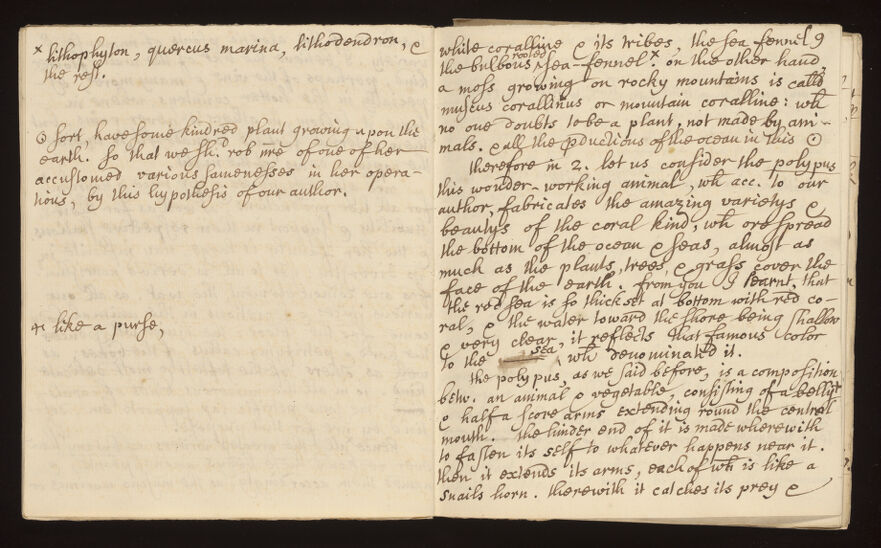 x lithophyton, quercus marina, lithodendron, &
the rest.
⊙ sort, have some kindred plant growing upon the
earth. so that we shd. rob nre of one of her
accustomed various samenesses in her opera-
tions, by this hypothesis of our author.
+ like a purse,
9
white coralline & its tribes, the sea fennel
the bulbous rooted sea-fennel x. on the other hand
a moss growing on rocky mountains is calld
muscus corallinus or mountain coralline: wh
no one doubts to be a plant, not made by ani-
mals. & all the pductions of the ocean in this ⊙
therefore in 2. let us consider the polypus
this wonder-working animal, wh acc. to our
author, fabricates the amazing varietys &
beautys of the coral kind, wh orespread
the bottom of the ocean & seas, almost as
much as the plants, trees, & grass cover the
face of the earth. from you I learnt, that
the red sea is so thick set at bottom with red co-
ral, & the water toward the shore being shallow
& very clear, it reflects that famous color
to the sea, wh denominated it.
the polypus, as we said before, is a composition
betw. an animal & vegetable, consisting of a belly +
& half a score arms extending round the central
mouth. the hinder end of it is made wherewith
to fasten its self to whatever happens near it.
then it extends its arms, each of wh is like a
snails horn. therewith it catches its prey &